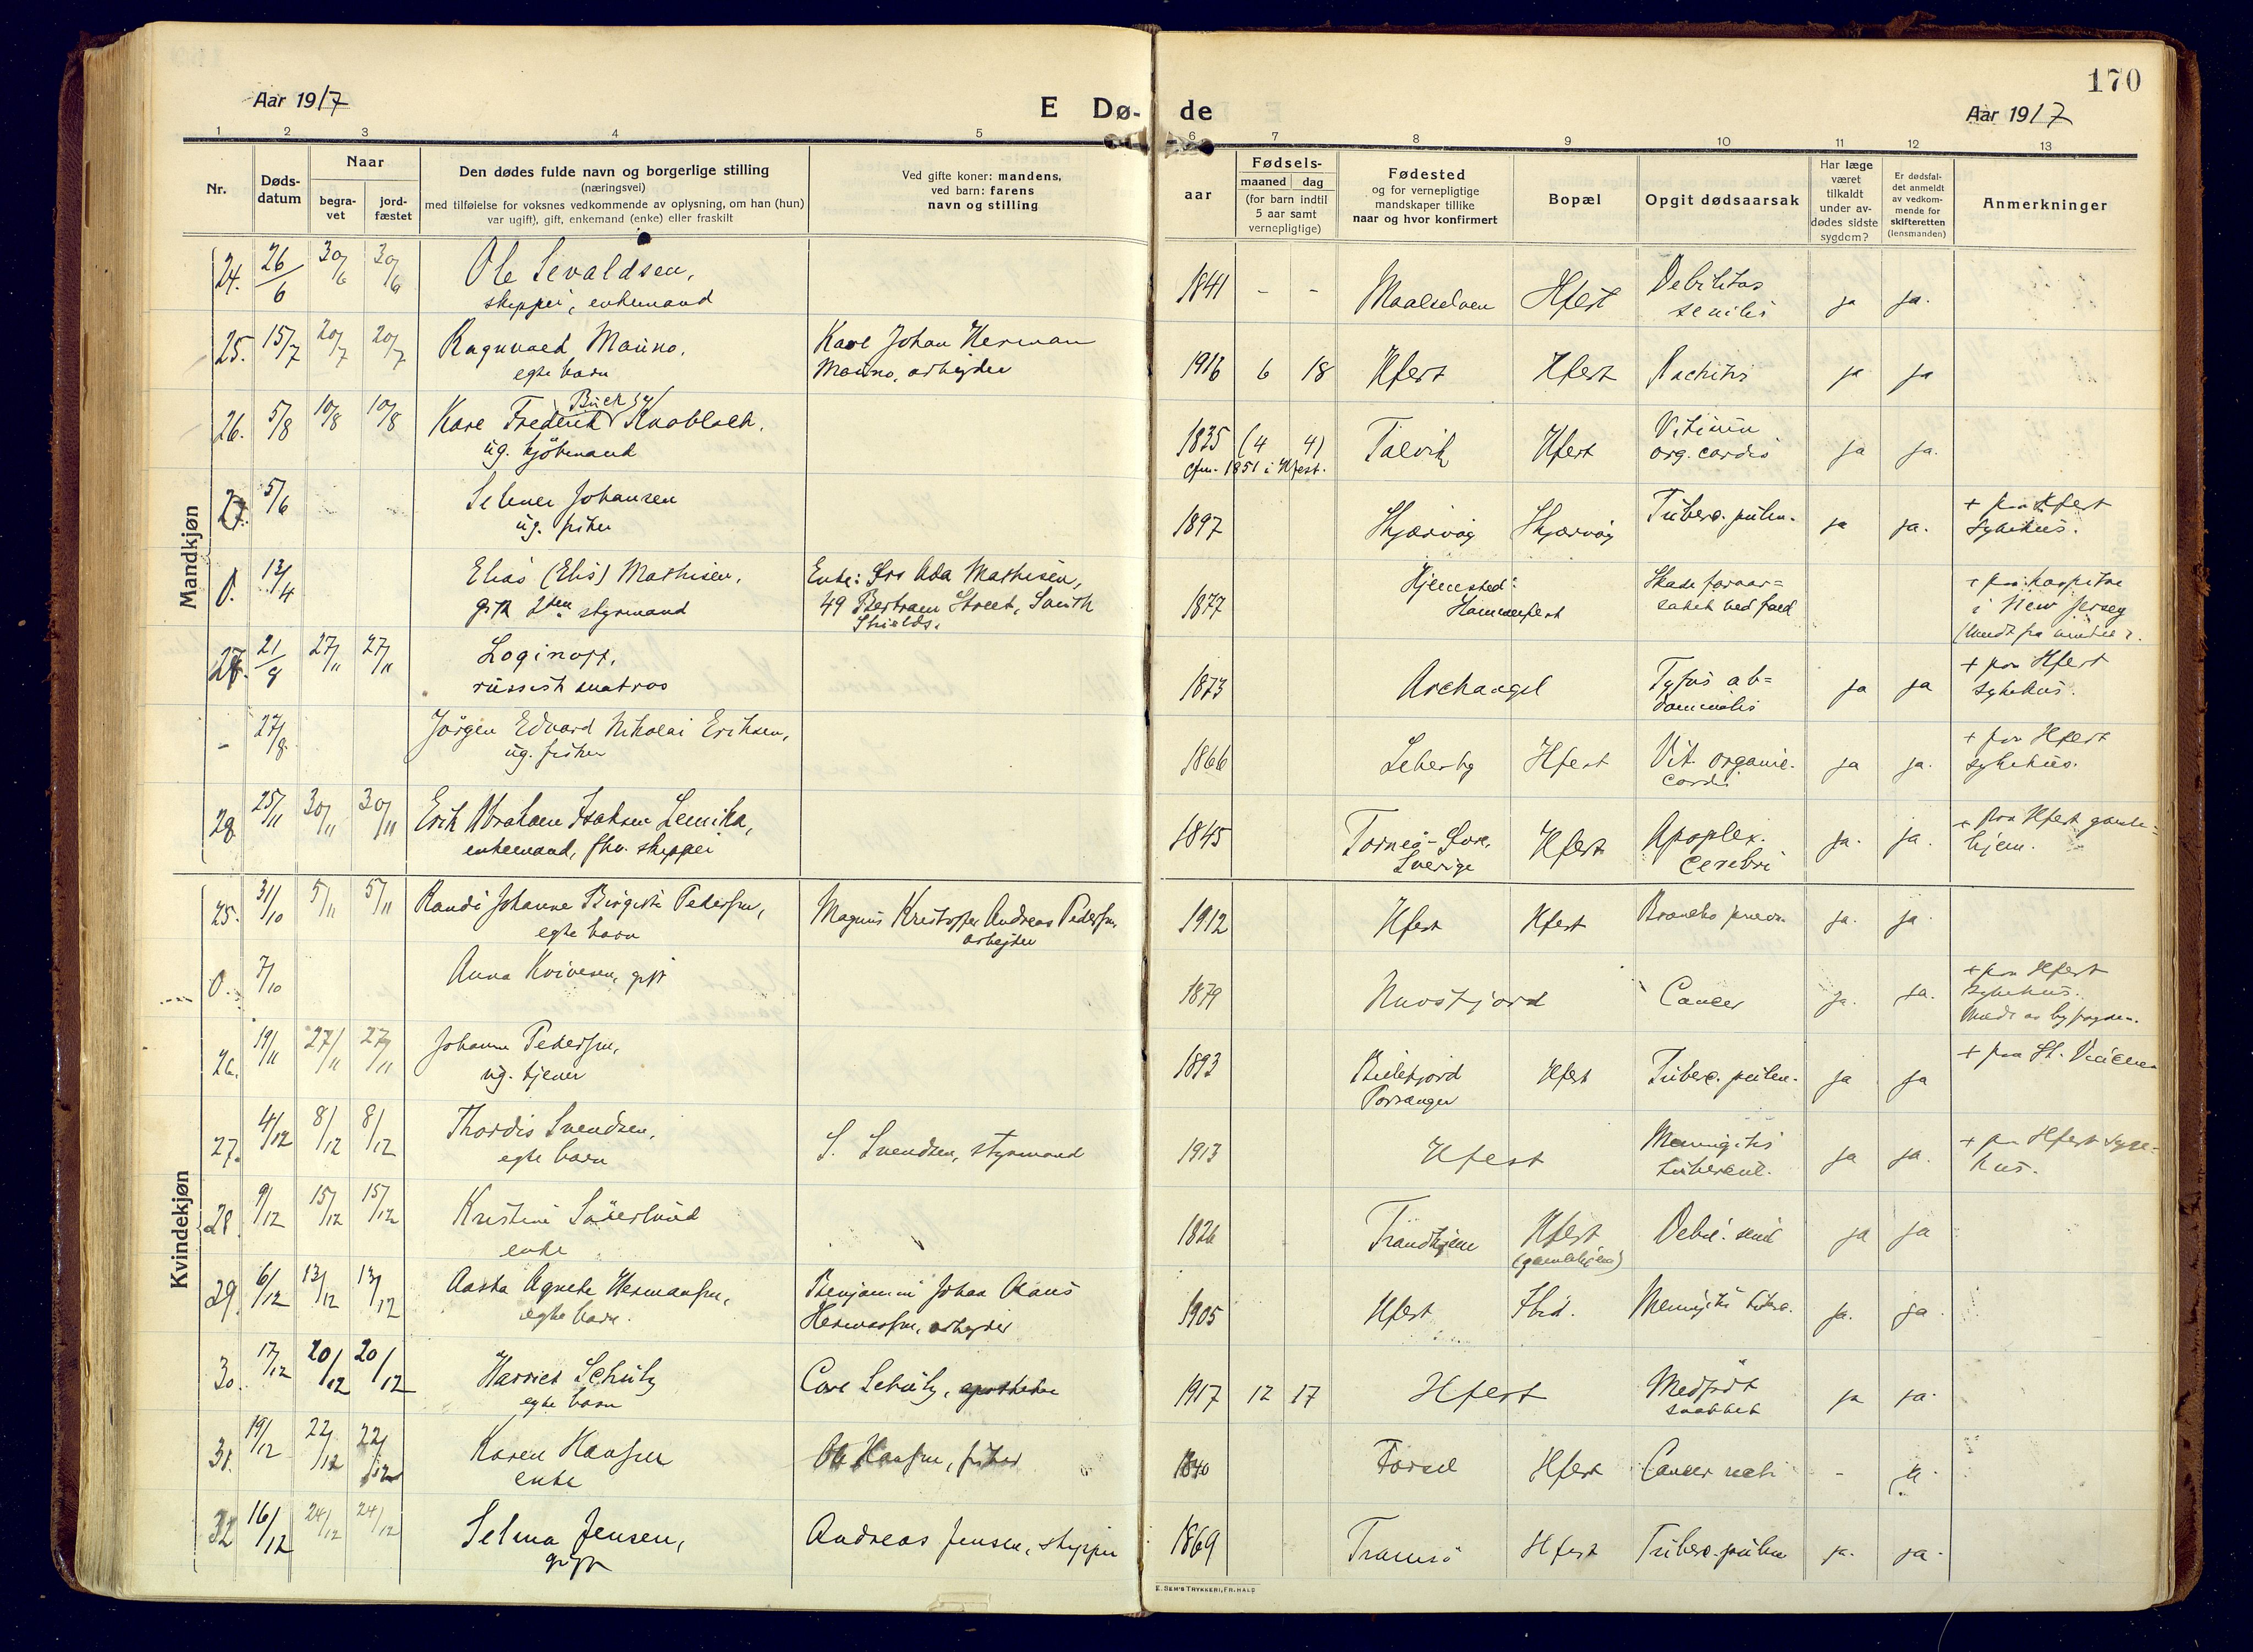 170
Aar 1917
E Dø-
de
Aar 1917
1
2
3
4
5
6
7
8
9
10
11
12
13
Nr.
Døds-
datum
Naar
begra-
vet
jord-
fæstet
Den dødes fulde navn og borgerlige stilling
(næringsvei)
med tilføielse for voksnes vedkommende av oplysning, om han (hun)
var ugift), gift, enkemand (enke) eller fraskilt
Ved gifte koner: mandens,
ved barn: farens
navn og stilling
Fødsels-
aar
maaned
dag
(for barn indtil
5 aar samt
vernepligtige)
Fødested
og for vernepligtige
mandskaper tillike
naar og hvor konfirmert
Bopæl
Opgit dødsaarsak
Har læge
været
tilkaldt
under av-
dødes sidste
sygdom?
Er dødsfal-
det anmeldt
av vedkom-
mende for
skifteretten
(lensmanden)
Anmerkninger
Mandkjøn
24. 26/6 30/6 30/6 Ole Sevaldsen, 1841 - - Maalselven Hfest Debilitas
skipper, enkemand senilis ja ja.
25. 15/7 20/7 20/7 Ragnvald Mauno, Karl Johan Herman 1916 6 18 Hfest Hfest Rachitis ja ja
egte barn Mauno, arbeider
26. 5/8 10/8 10/8 Karl Frederik Buck Knobloch, 1835 (4 4) Talvik Hfest Vitium
ug. kjøbmand cfm. 1851 i Hfest. org. cordis ja ja.
27. 5/6 Selmer Johansen 1897 Skjærvøy Skjærvøy Tuberc. pulm. ja ja. + paa Hfest
ug. fisker sykehus.
0. 13/4 Elias (Elis) Mathisen, Enke: Frs Ada Mathisen, 1877 Hjemsted: Skade foraar- + paa hospital
gift 2den styrmand 49 Bertram Street, South Hammerfest saket ved fald i New Jersey
Shields.
27. 21/9 27/11 27/11 Loginoff, 1873 Archangel Tyfus ab- ja ja + paa Hfest
russisk matros dominalis sykehus.
- 27/8 Jørgen Edvard Nikolai Eriksen, 1866 Lebesby Hfest Vit. organic. ja ja. + paa Hfest
ug. fisker cordis sykehus.
28. 25/11 30/11 30/11 Erik Abraham Isaksen Lemika, 1845 Torneå- Hfest Apoplex. ja. ja. + paa Hfest gamle-
enkemand, fhv. skipper Sverige cerebri hjem.
Kvindekjøn
25. 31/10 5/11 5/11 Randi Johanne Birgitte Pedersen, Magnus Kristoffer Andreas Pedersen, 1912 Hfest Hfest Broncho pneum. ja. ja.
egte barn arbeider
0. 7/10 Anna Kvivesen, gift 1879 Kvosfjord Cancer ja. ja. + paa Hfest
sykehus.
26. 19/11 27/11 27/11 Johanne Pedersen, 1893 Billefjord Hfest Tuberc. pulm. ja ja + paa St.
ug. tjener Porsanger
27. 4/12 8/12 8/12 Thordis Svendsen, S. Svendsen, styrmand 1913 Hfest Meningitis ja ja. + paa Hfest syke-
egte barn tubercul. hus.
28. 9/12 15/12 15/12 Kristine Söderlund 1826 Trondhjem Hfest Debil. senil ja ja
enke (gamlehjem)
29. 6/12 13/12 13/12 Aasta Agnete Hermansen, Benjamin Johan Claus 1905 Hfest Ibid. Meningitis tuberc. ja. ja.
egte barn. Hermansen, arbeider
30. 17/12 20/12 20/12 Harriet Schulz Carl Schulz, apotheker 1917 12 17 Hfest Medfødt ja ja.
egte barn svakhet
31. 19/12 22/12 22/12 Karen Hansen Ole Hansen, fisker 1840 Hfest Cancer - ja.
enke
32 16/12 24/12 24/12 Selma Jensen, Andreas Jensen, skipper 1869 Tromsø Hfest Tuberc. pulm ja. ja.
gift
E. SEM'S TRYKKERI, FR.HALD